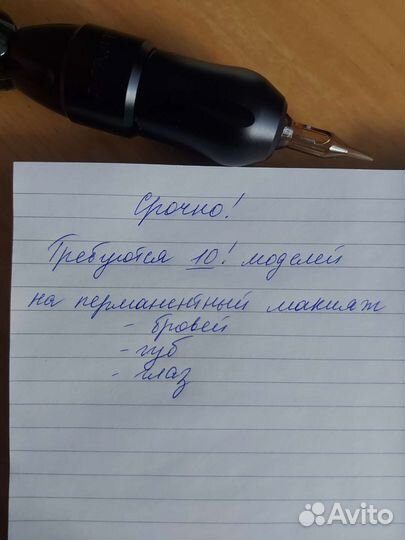 Срочно!
Требуются 10! моделей
на перманентный макияж
- бровей
- губ
- глаз
Avito